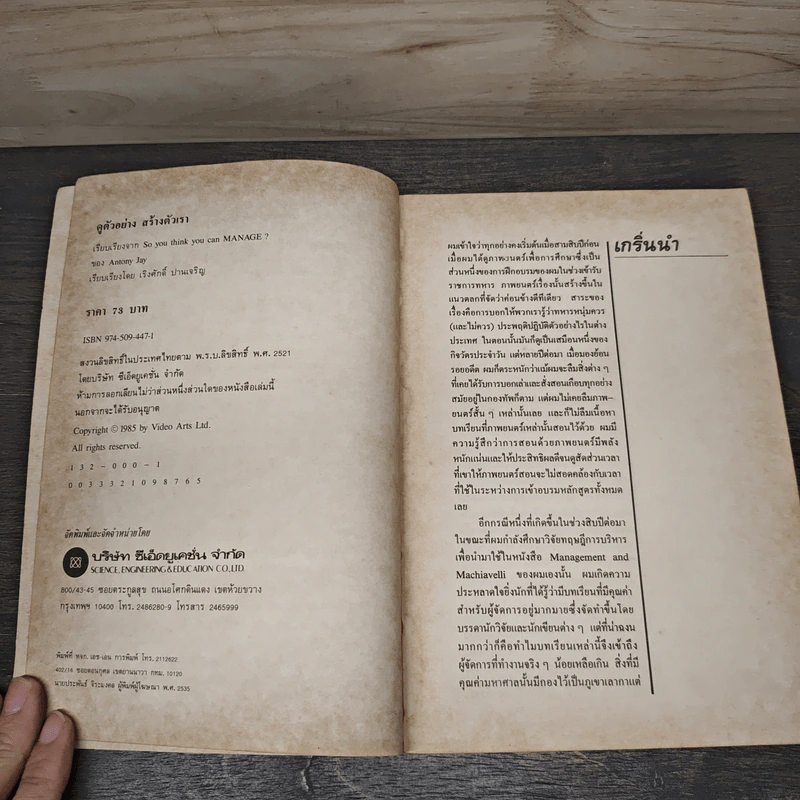 ดูตัวอย่าง สร้างตัวเรา
เรียบเรียงจาก So you think you can MANAGE ?
ของ Antony Jay
เรียบเรียงโดย เริงศักดิ์ ปานเจริญ
ราคา 73 บาท
ISBN 974-509-447-1
สงวนลิขสิทธิ์ในประเทศไทยตาม พ.ร.บ.ลิขสิทธิ์ พ.ศ. 2521
โดยบริษัท ซีเอ็ดยูเคชั่น จำกัด
ห้ามการลอกเลียนไม่ว่าส่วนหนึ่งส่วนใดของหนังสือเล่มนี้
นอกจากจะได้รับอนุญาต
Copyright © 1985 by Video Arts Ltd.
All rights reserved.
1 3 2 - 0 0 0 - 1
0 0 3 3 3 2 1 0 9 8 7 6 5
จัดพิมพ์และจัดจำหน่ายโดย
บริษัท ซีเอ็ดยูเคชั่น จำกัด
SCIENCE, ENGINEERING & EDUCATION CO.,LTD.
800/43-45 ซอยตระกูลสุข ถนนอโศกดินแดง เขตห้วยขวาง
กรุงเทพฯ 10400 โทร. 2486280-9 โทรสาร 2465999
พิมพ์ที่ หจก. เอช-เอน การพิมพ์ โทร. 2112622
402/16 ซอยดอนกุศล เขตยานนาวา กทม. 10120
นายประพันธ์ จิระมงคล ผู้พิมพ์ผู้โฆษณา พ.ศ. 2535
เกริ่นนำ
ผมเข้าใจว่าทุกอย่างคงเริ่มต้นเมื่อสามสิบปีก่อน
เมื่อผมได้ดูภาพยนตร์เพื่อการศึกษาซึ่งเป็น
ส่วนหนึ่งของการฝึกอบรมของผมในช่วงเข้ารับ
ราชการทหาร ภาพยนตร์เรื่องนั้นสร้างขึ้นใน
แนวตลกที่จัดว่าค่อนข้างดีทีเดียว สาระของ
เรื่องคือการบอกให้พวกเรารู้ว่าทหารหนุ่มควร
(และไม่ควร) ประพฤติปฏิบัติตัวอย่างไรในต่าง
ประเทศ ในตอนนั้นมันก็ดูเป็นเสมือนหนึ่งของ
กิจวัตรประจำวัน แต่หลายปีต่อมา เมื่อมองย้อน
รอยอดีต ผมก็ตระหนักว่าแม้ผมจะลืมสิ่งต่าง ๆ
ที่เคยได้รับการบอกเล่าและสั่งสอนเกือบทุกอย่าง
สมัยอยู่ในกองทัพก็ตาม แต่ผมไม่เคยลืมภาพ-
ยนตร์สั้น ๆ เหล่านั้นเลย และก็ไม่ลืมเนื้อหา
บทเรียนที่ภาพยนตร์เหล่านั้นสอนไว้ด้วย ผมมี
ความรู้สึกว่าการสอนด้วยภาพยนตร์มีพลัง
หนักแน่นและให้ประสิทธิผลดีจนดูสัดส่วนเวลา
ที่เขาให้ภาพยนตร์สอนจะไม่สอดคล้องกับเวลา
ที่ใช้ในระหว่างการเข้าอบรมหลักสูตรทั้งหมด
เลย
อีกกรณีหนึ่งที่เกิดขึ้นในช่วงสิบปีต่อมา
ในขณะที่ผมกำลังศึกษาวิจัยทฤษฎีการบริหาร
เพื่อนำมาใช้ในหนังสือ Management and
Machiavelli ของผมเองนั้น ผมเกิดความ
ประหลาดใจยิ่งนักที่ได้รู้ว่ามีบทเรียนที่มีคุณค่า
สำหรับผู้จัดการอยู่มากมายซึ่งจัดทำขึ้นโดย
บรรดานักวิจัยและนักเขียนต่าง ๆ แต่ที่น่าฉงน
มากกว่าก็คือทำไมบทเรียนเหล่านี้จึงเข้าถึง
ผู้จัดการที่ทำงานจริง ๆ น้อยเหลือเกิน สิ่งที่มี
คุณค่ามหาศาลนั้นมีกองไว้เป็นภูเขาเลากาแต่